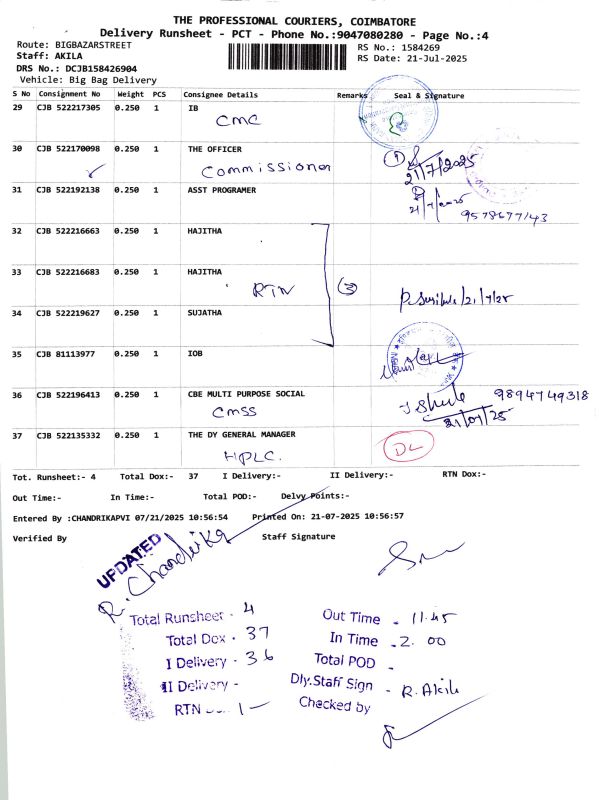 THE PROFESSIONAL COURIERS, COIMBATORE
Delivery Runsheet - PCT - Phone No.:9047080280 - Page No.:4
Route: BIGBAZARSTREET
RS No.: 1584269
Staff: AKILA
RS Date: 21-Jul-2025
DRS No.: DCJB158426904
Vehicle: Big Bag Delivery
S No Consignment No Weight PCS Consignee Details Remarks Seal & Signature
29 CJB 522217305 0.250 1 IB
CMC
30 CJB 522170098 0.250 1 THE OFFICER
Commissioner
① 21/7/2025
31 CJB 522192138 0.250 1 ASST PROGRAMER
9578677143
32 CJB 522216663 0.250 1 HAJITHA
33 CJB 522216683 0.250 1 HAJITHA
RTN ③
21/7/25
34 CJB 522219627 0.250 1 SUJATHA
35 CJB 81113977 0.250 1 IOB
36 CJB 522196413 0.250 1 CBE MULTI PURPOSE SOCIAL
CMSS
9894749318
21/07/25
37 CJB 522135332 0.250 1 THE DY GENERAL MANAGER
HPLC.
DL
Tot. Runsheet:- 4 Total Dox:- 37 I Delivery:- II Delivery:- RTN Dox:-
Out Time:- In Time:- Total POD:- Delvy Points:-
Entered By :CHANDRIKAPVI 07/21/2025 10:56:54 Printed On: 21-07-2025 10:56:57
Verified By Staff Signature
UPDATED
R. Chandrika
Total Runsheet - 4
Total Dox - 37
I Delivery - 36
II Delivery -
RTN 1 -
Out Time - 11.45
In Time - 2.00
Total POD -
Dly.Staff Sign - R. Akila
Checked by